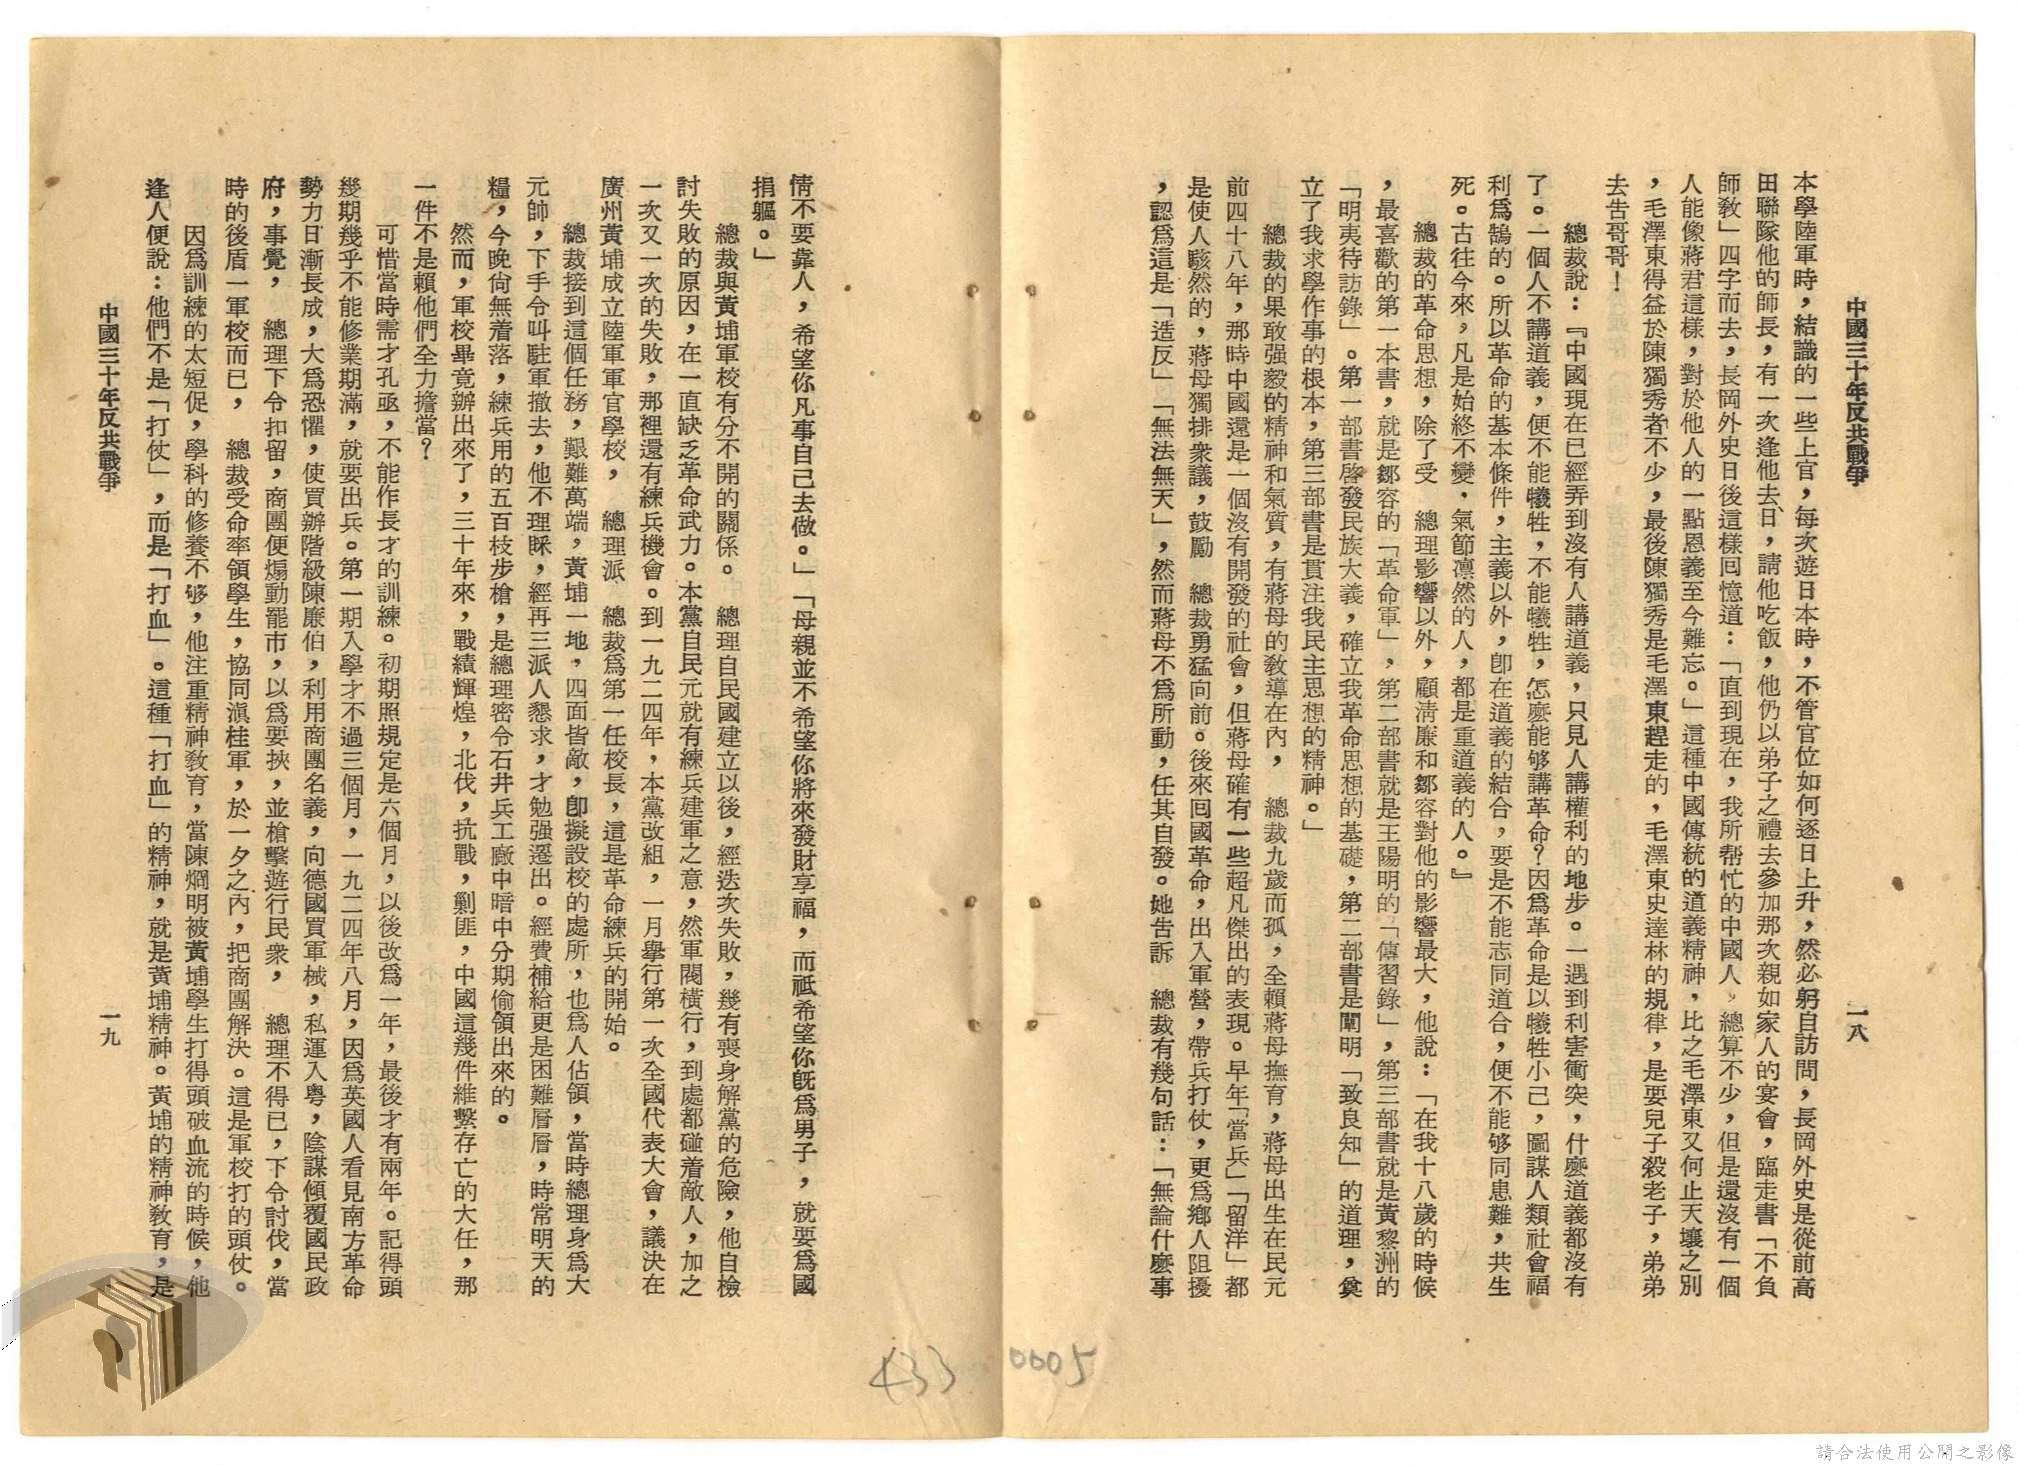 中國三十年反共戰爭
一八
本學陸軍時，結識的一些上官，每次遊日本時，不管官位如何逐日上升，然必躬自訪問，長岡外史是從前高
田聯隊他的師長，有一次逢他去日，請他吃飯，他仍以弟子之禮去參加那次親如家人的宴會，臨走書「不負
師教」四字而去，長岡外史日後這樣回憶道：「直到現在，我所帮忙的中國人，總算不少，但是還沒有一個
人能像蔣君這樣，對於他人的一點恩義至今難忘。」這種中國傳統的道義精神，比之毛澤東又何止天壤之別
，毛澤東得益於陳獨秀者不少，最後陳獨秀是毛澤東趕走的，毛澤東史達林的規律，是要兒子殺老子，弟弟
去吿哥哥！
總裁說：『中國現在已經弄到沒有人講道義，只見人講權利的地步。一遇到利害衝突，什麼道義都沒有
了。一個人不講道義，便不能犧牲，不能犧牲，怎麼能够講革命？因爲革命是以犧牲小己，圖謀人類社會福
利爲鵠的。所以革命的基本條件，主義以外，卽在道義的結合，要是不能志同道合，便不能够同患難，共生
死。古往今來，凡是始終不變，氣節凛然的人，都是重道義的人。』
總裁的革命思想，除了受　總理影響以外，顧淸廉和鄒容對他的影響最大，他說：「在我十八歲的時候
，最喜歡的第一本書，就是鄒容的「革命軍」，第二部書就是王陽明的「傳習錄」，第三部書就是黃黎洲的
「明夷待訪錄」。第一部書啓發民族大義，確立我革命思想的基礎，第二部書是闡明「致良知」的道理，奠
立了我求學作事的根本，第三部書是貫注我民主思想的精神。」
總裁的果敢强毅的精神和氣質，有蔣母的敎導在內，　總裁九歲而孤，全賴蔣母撫育，蔣母出生在民元
前四十八年，那時中國還是一個沒有開發的社會，但蔣母確有一些超凡傑出的表現。早年「當兵」「留洋」都
是使人駭然的，蔣母獨排衆議，鼓勵　總裁勇猛向前。後來囘國革命，出入軍營，帶兵打仗，更爲鄉人阻擾
，認爲這是「造反」「無法無天」，然而蔣母不爲所動，任其自發。她告訴　總裁有幾句話：「無論什麼事
情不要靠人，希望你凡事自己去做。」「母親並不希望你將來發財享福，而祗希望你旣爲男子，就要爲國
捐軀。」
總裁與黃埔軍校有分不開的關係。　總理自民國建立以後，經迭次失敗，幾有喪身解黨的危險，他自檢
討失敗的原因，在一直缺乏革命武力。本黨自民元就有練兵建軍之意，然軍閥橫行，到處都碰着敵人，加之
一次又一次的失敗，那裡還有練兵機會。到一九二四年，本黨改組，一月舉行第一次全國代表大會，議決在
廣州黃埔成立陸軍軍官學校，　總理派　總裁爲第一任校長，這是革命練兵的開始。
總裁接到這個任務，艱難萬端，黃埔一地，四面皆敵，卽擬設校的處所，也爲人佔領，當時總理身爲大
元帥，下手令叫駐軍撤去，他不理睬，經再三派人懇求，才勉强遷出。經費補給更是困難層層，時常明天的
糧，今晚尙無着落，練兵用的五百枝步槍，是總理密令石井兵工廠中暗中分期偷領出來的。
然而，軍校畢竟辦出來了，三十年來，戰績輝煌，北伐，抗戰，剿匪，中國這幾件維繫存亡的大任，那
一件不是賴他們全力擔當？
可惜當時需才孔亟，不能作長才的訓練。初期照規定是六個月，以後改爲一年，最後才有兩年。記得頭
幾期幾乎不能修業期滿，就要出兵。第一期入學才不過三個月，一九二四年八月，因爲英國人看見南方革命
勢力日漸長成，大爲恐懼，使買辦階級陳廉伯，利用商團名義，向德國買軍械，私運入粤，陰謀傾覆國民政
府，事覺，　總理下令扣留，商團便煽動罷市，以爲要挾，並槍擊遊行民衆，　總理不得已，下令討伐，當
時的後盾一軍校而已，　總裁受命率領學生，協同滇桂軍，於一夕之內，把商團解決。這是軍校打的頭仗。
因爲訓練的太短促，學科的修養不够，他注重精神敎育，當陳烱明被黃埔學生打得頭破血流的時候，他
逢人便說：他們不是「打仗」，而是「打血」。這種「打血」的精神，就是黃埔精神。黃埔的精神敎育，是
中國三十年反共戰爭
一九
433
0005
請合法使用公開之影像